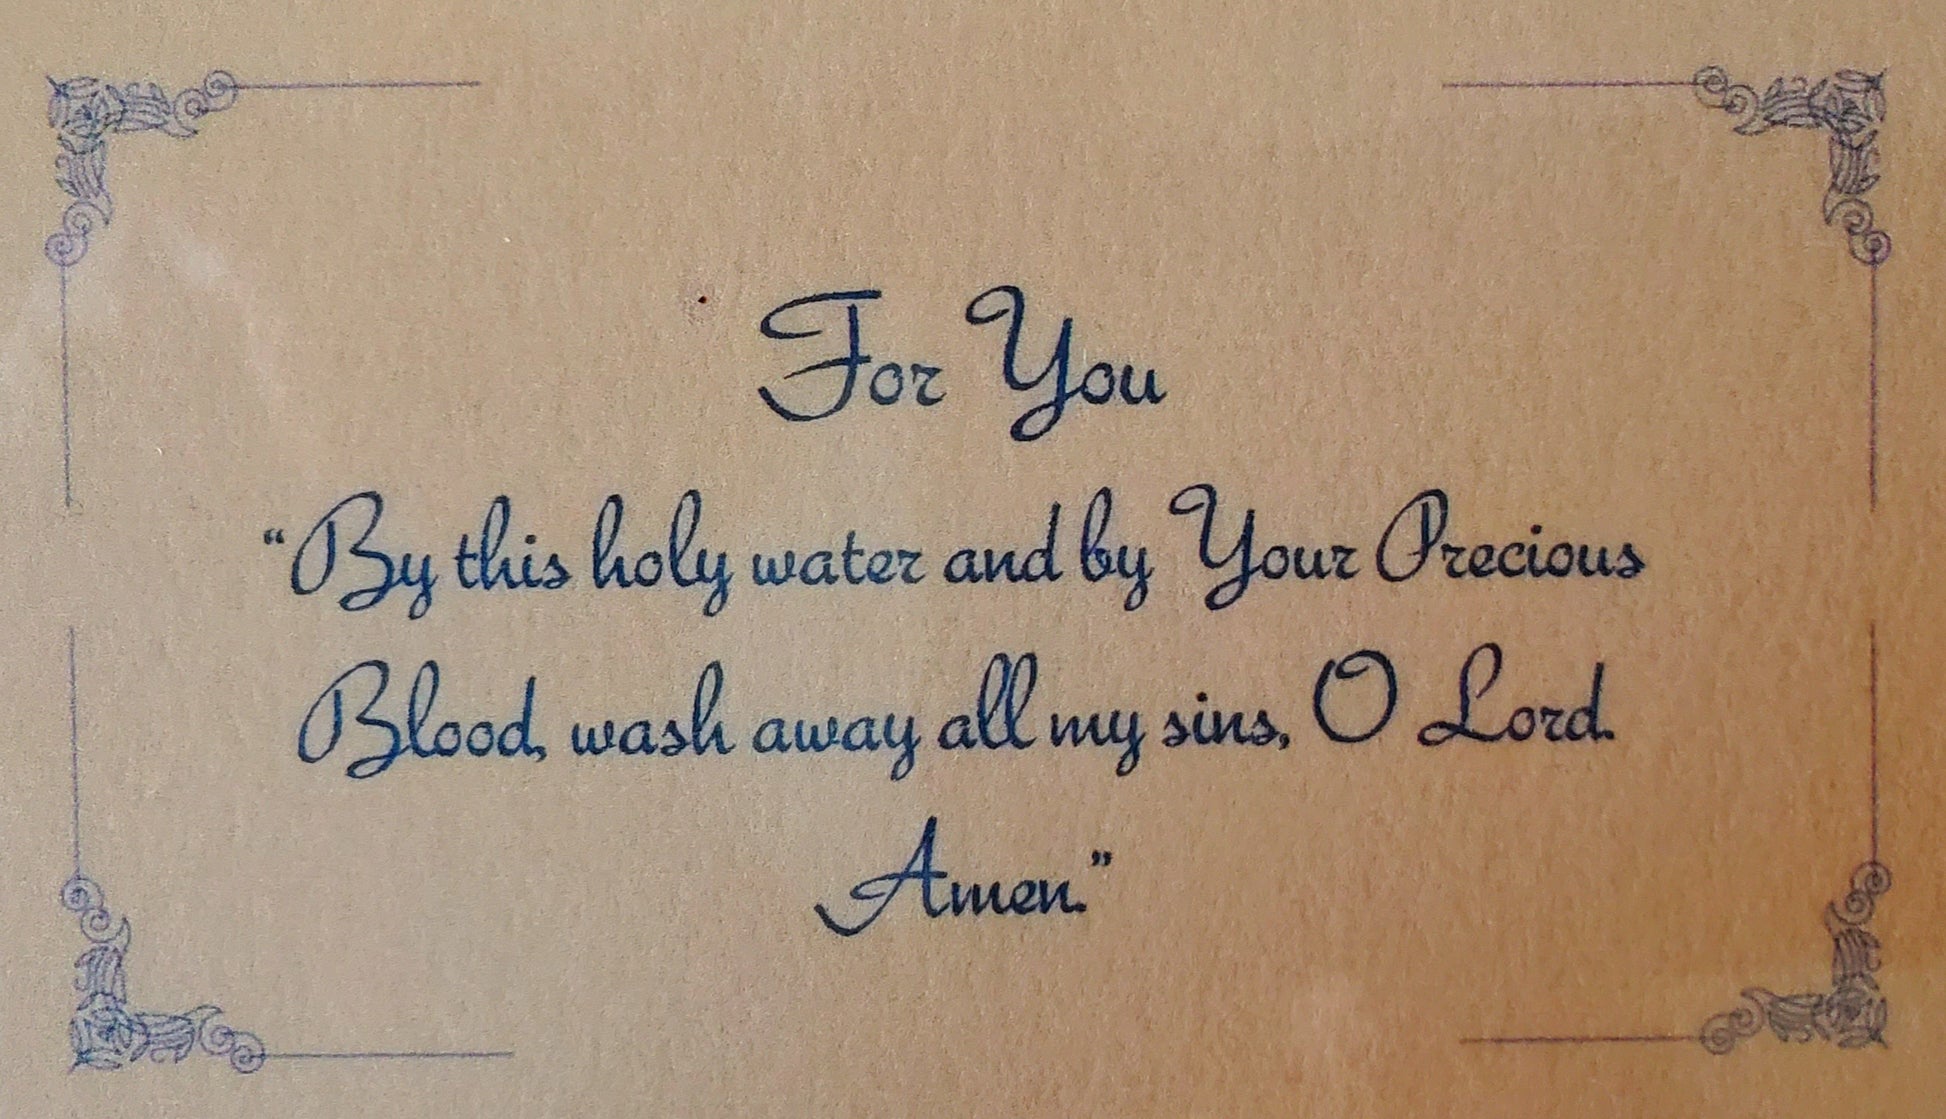 For You
“By this holy water and by Your Precious
Blood, wash away all my sins, O Lord.
Amen.”